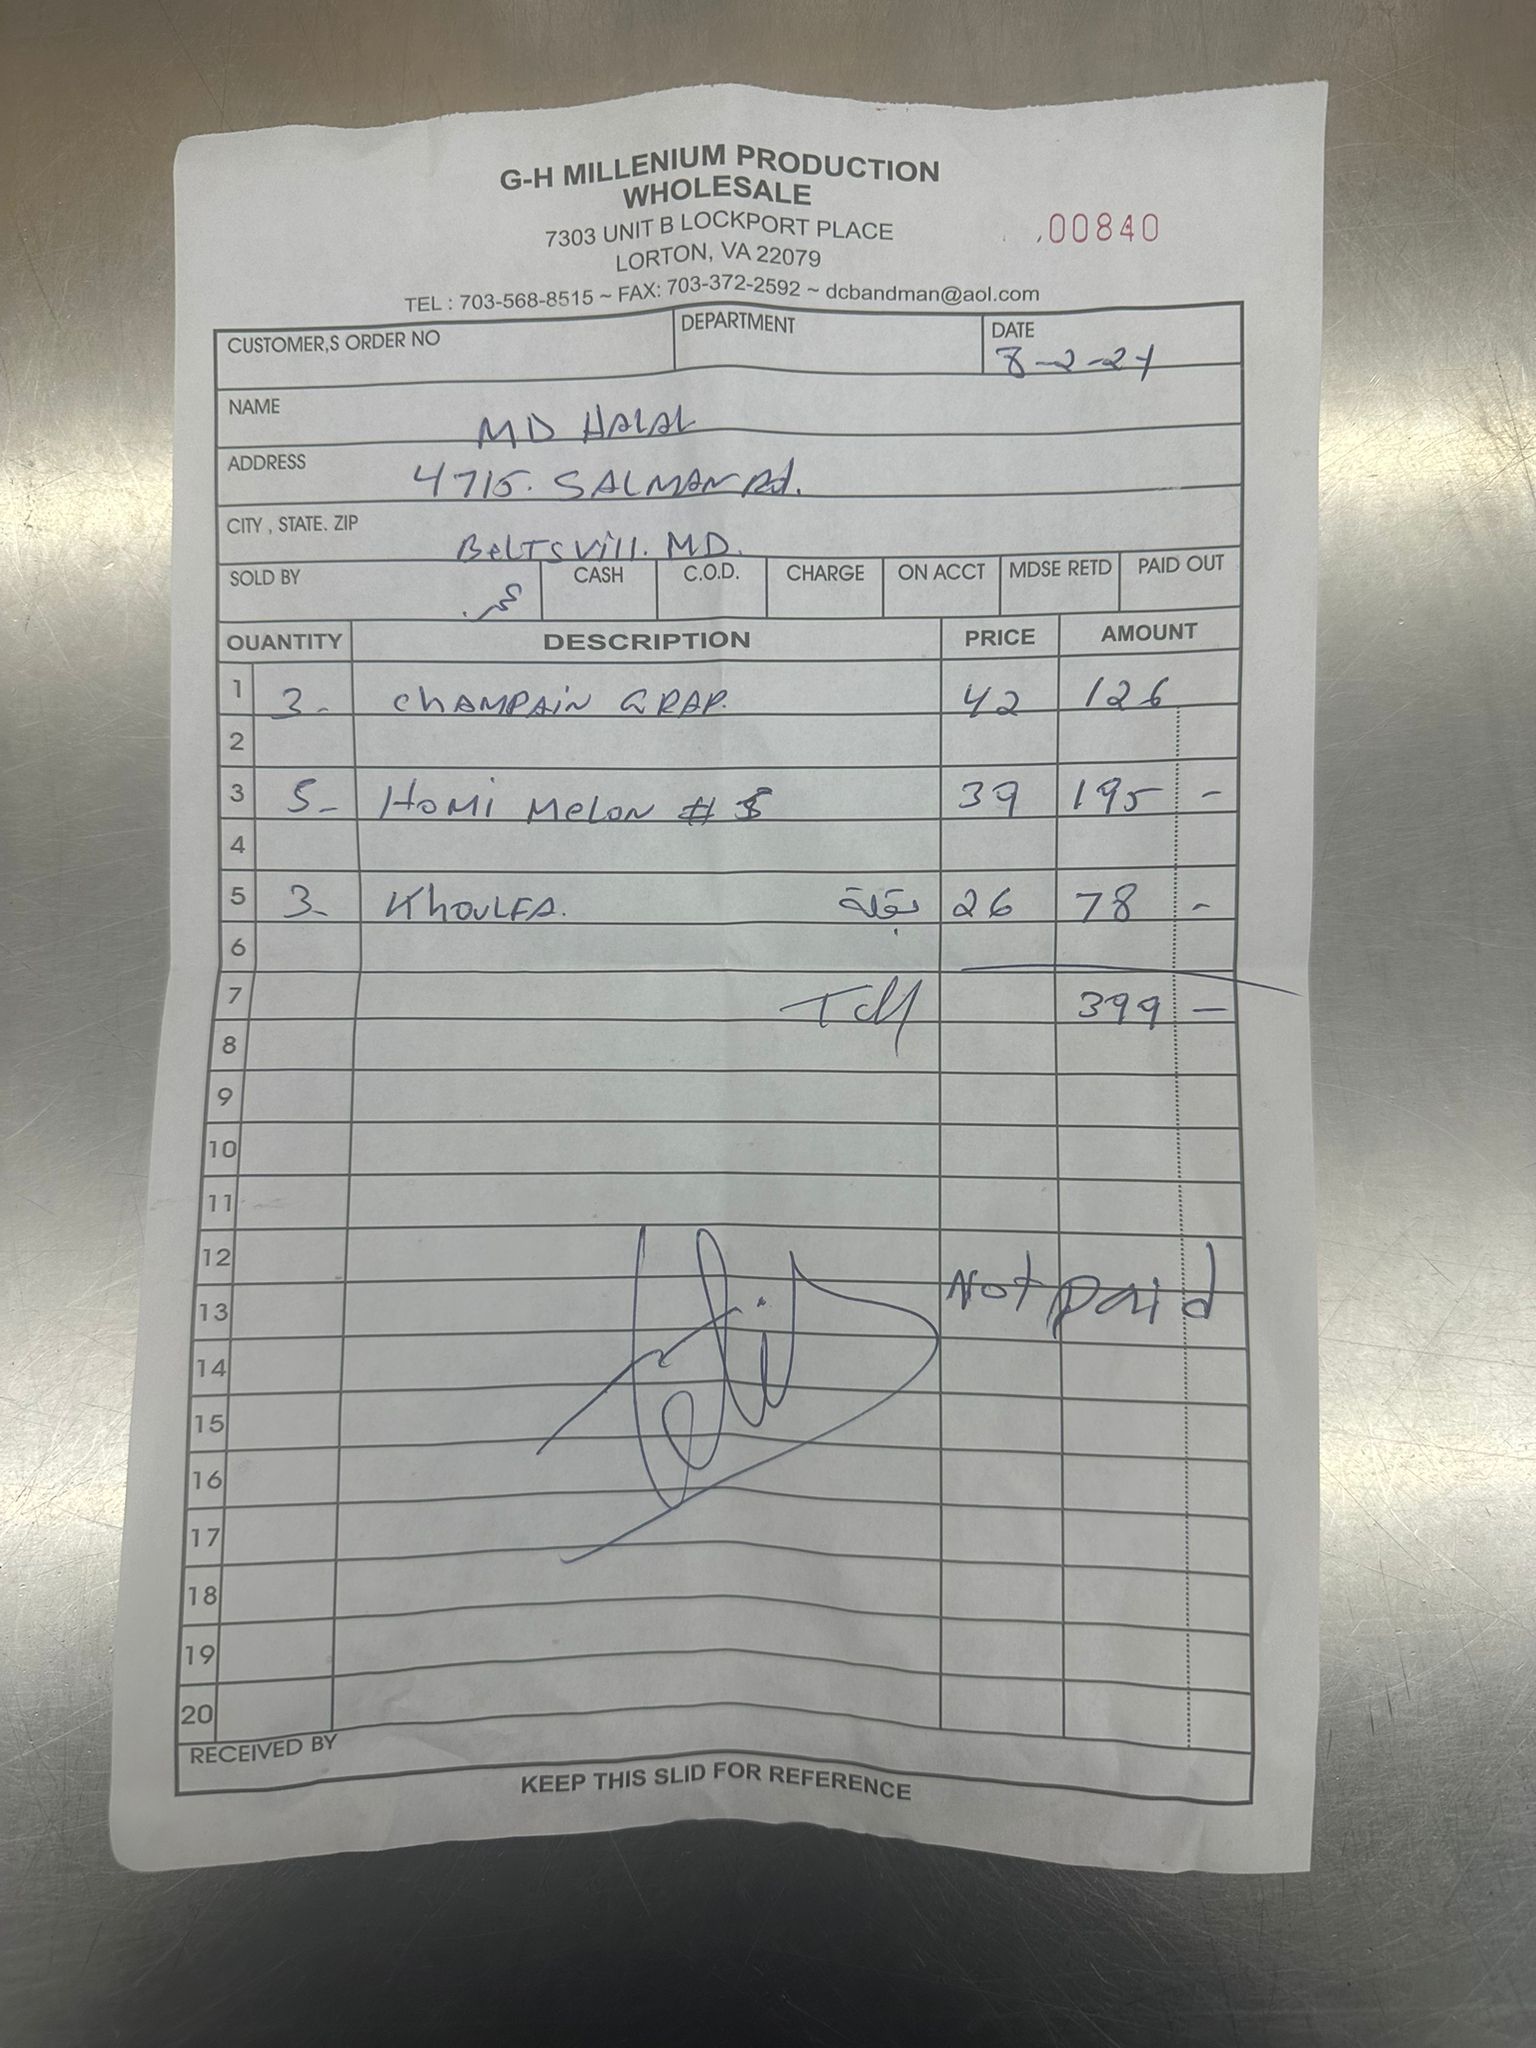 G-H MILLENIUM PRODUCTION
WHOLESALE
7303 UNIT B LOCKPORT PLACE
LORTON, VA 22079
00840
TEL : 703-568-8515 ~ FAX: 703-372-2592 ~ dcbandman@aol.com
CUSTOMER,S ORDER NO DEPARTMENT DATE
8-2-24
NAME MD HALAL
ADDRESS 4715. SALMAN Rd.
CITY , STATE. ZIP BeLTSVill. MD.
SOLD BY CASH C.O.D. CHARGE ON ACCT MDSE RETD PAID OUT
QUANTITY DESCRIPTION PRICE AMOUNT
1 3- CHAMPAIN GRAP. 42 126
2
3 5- HOMI MeLON # 5 39 195 -
4
5 3- KHOULFA. بقلة 26 78 -
6
7 399 -
8
9
10
11
12
13 Not paid
14
15
16
17
18
19
20
RECEIVED BY
KEEP THIS SLID FOR REFERENCE